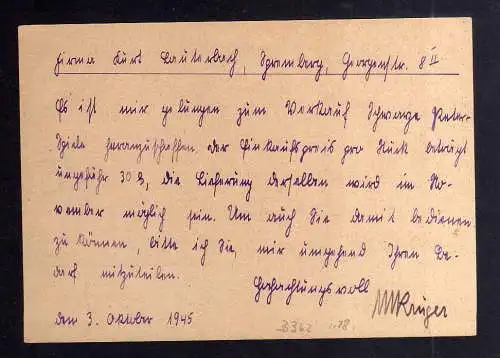 Firma Kurt Lauterbach, Spremberg, Georgenstr. 8 II
Es ist mir gelungen zum Verkauf Schwarze Peter-
Spiele heranzuschaffen. Der Einkaufspreis pro Stück beträgt
ungefähr 30 ₰, die Lieferung derselben wird im No-
vember möglich sein. Um auch Sie damit bedienen
zu können, bitte ich Sie, mir umgehend Ihren Be-
darf mitzuteilen.
Hochachtungsvoll
MKrüger
den 3. Oktober 1945